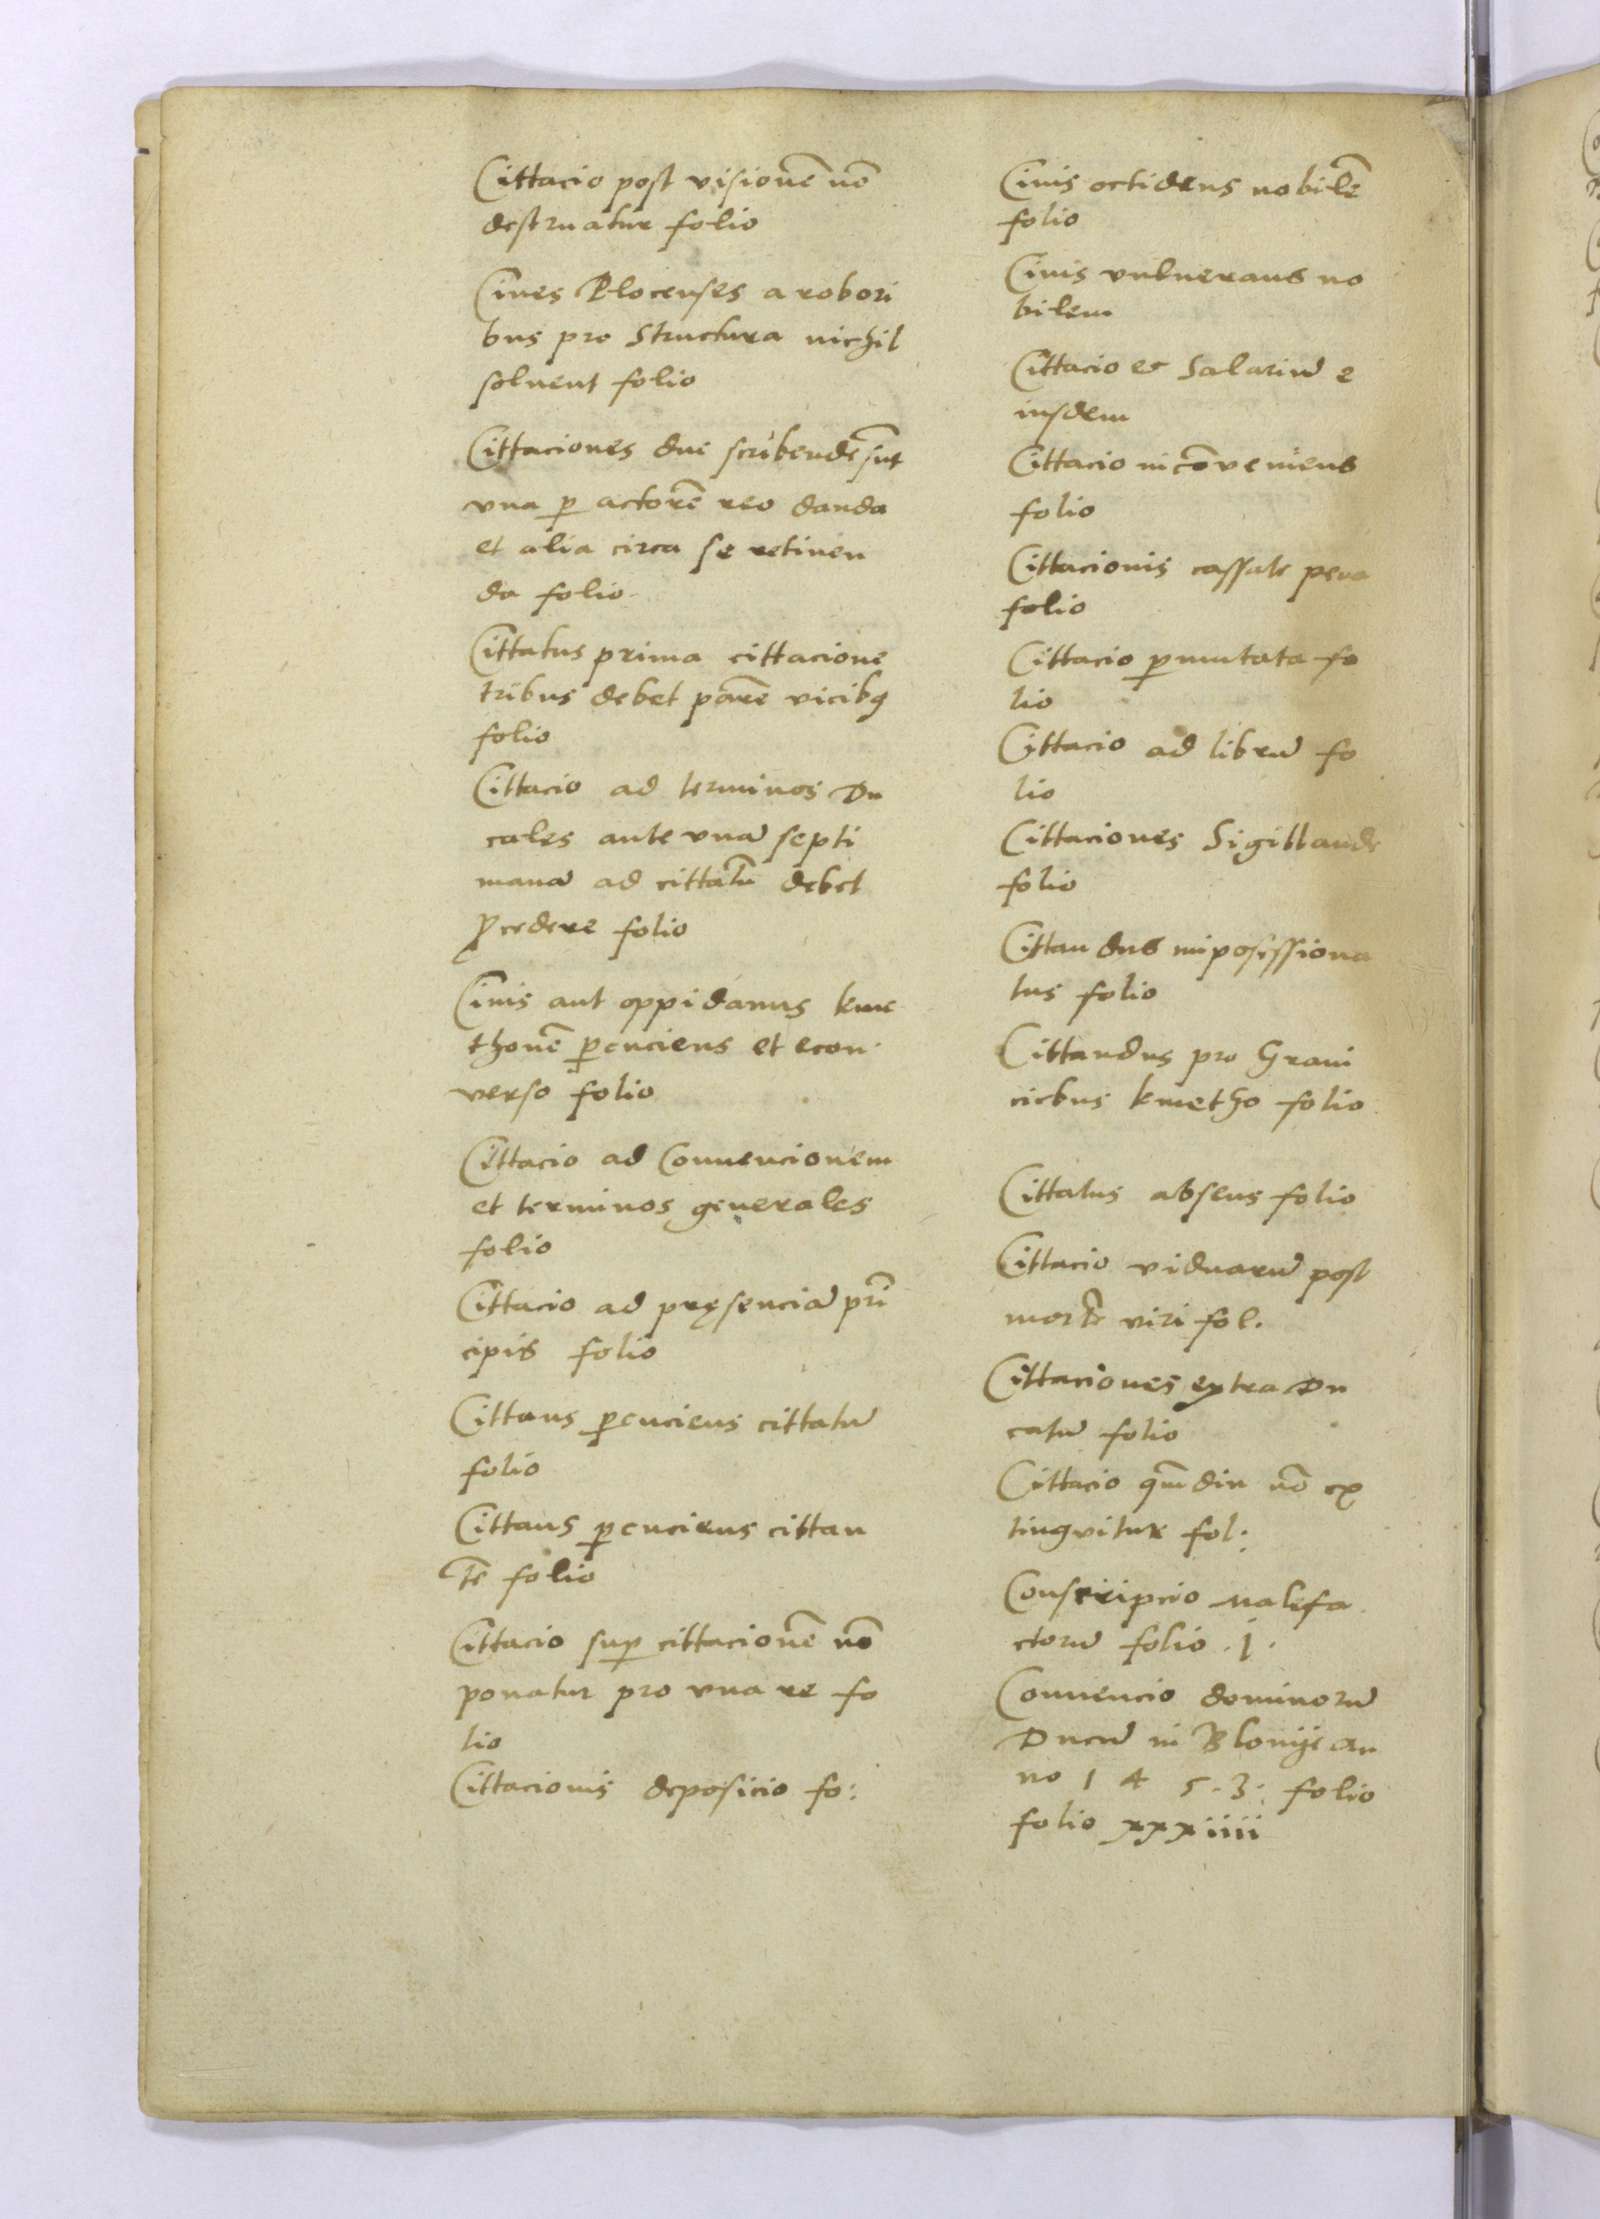 Cittacio post visionē nō
destruatur folio
Ciues Plocenses a robori
bus pro Structura nichil
soluent folio
Cittaciones due scribende sūt
vna p̱ actorē reo danda
et alia circa se retinen
da folio
Cittatus prima cittacione
tribus debet parē vicibꝫ
folio
Cittacio ad terminos Du
cales ante vnā septi
manā ad cittatū debet
ꝓcedere folio
Ciuis aut oppidanus kme
thonē ꝑcuciens et econ
verso folio
Cittacio ad Conuencionem
et terminos generales
folio
Cittacio ad pręsenciā pri̅
cipis folio
Cittans ꝑcuciens cittatū
folio
Cittans ꝑcuciens cittan
tē folio
Cittacio suꝑ cittacionē nō
ponatur pro vna re fo
lio
Cittacionis deposicio fo:
Ciuis occidens nobilē
folio
Ciuis vulnerans no
bilem
Cittacio et Salariū e
iusdem
Cittacio incōveniens
folio
Cittacionis cassate pena
folio
Cittacio ꝑmutata fo
lio
Cittacio ad librū fo
lio
Cittaciones Sigillande
folio
Cittandus impossessiona
tus folio
Cittandus pro Grani
ciebus kmetho folio
Cittatus absens folio
Cittacio viduarū post
mortē viri fol.
Cittaciones extra Du
catū folio
Cittacio qm̄diu nō ex
tingvitur fol:
Conscripcio malefa
ctorū folio .1.
Conuencio dominorū
Ducū in Blonije an
no 1 4 5.3. folio
folio xxxiiii